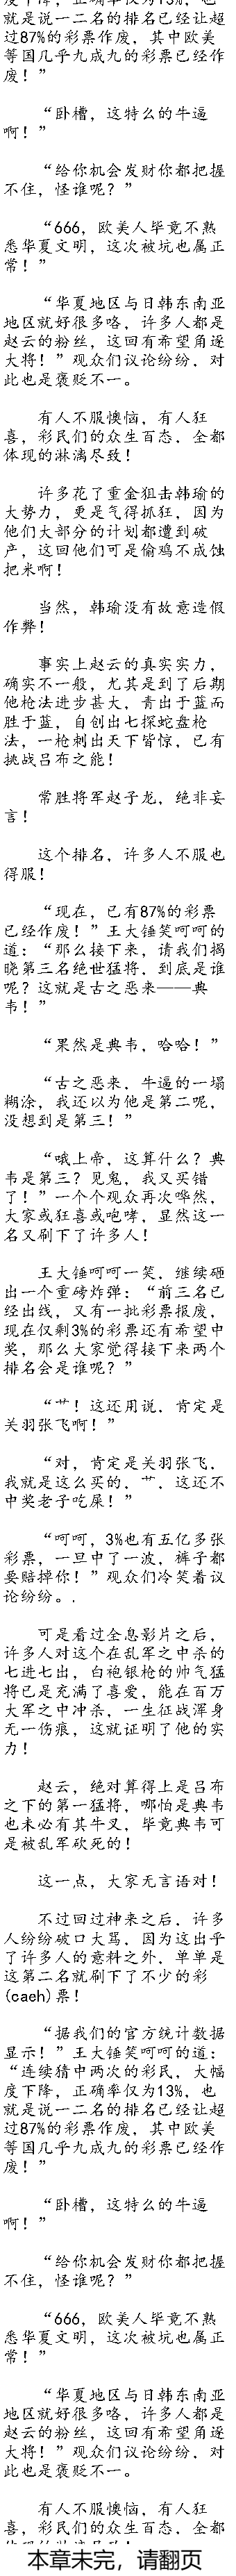 就是说一二名的排名已经让超
过87%的彩票作废，其中欧美
等国几乎九成九的彩票已经作
废！”
“卧槽，这特么的牛逼
啊！”
“给你机会发财你都把握
不住，怪谁呢？”
“666，欧美人毕竟不熟
悉华夏文明，这次被坑也属正
常！”
“华夏地区与日韩东南亚
地区就好很多咯，许多人都是
赵云的粉丝，这回有希望角逐
大将！”观众们议论纷纷，对
此也是褒贬不一。
有人不服懊恼，有人狂
喜，彩民们的众生百态，全都
体现的淋漓尽致！
许多花了重金狙击韩瑜的
大势力，更是气得抓狂，因为
他们大部分的计划都遭到破
产，这回他们可是偷鸡不成蚀
把米啊！
当然，韩瑜没有故意造假
作弊！
事实上赵云的真实实力，
确实不一般，尤其是到了后期
他枪法进步甚大，青出于蓝而
胜于蓝，自创出七探蛇盘枪
法，一枪刺出天下皆惊，已有
挑战吕布之能！
常胜将军赵子龙，绝非妄
言！
这个排名，许多人不服也
得服！
“现在，已有87%的彩票
已经作废！”王大锤笑呵呵的
道：“那么接下来，请我们揭
晓第三名绝世猛将，到底是谁
呢？这就是古之恶来——典
韦！”
“果然是典韦，哈哈！”
“古之恶来，牛逼的一塌
糊涂，我还以为他是第二呢，
没想到是第三！”
“哦上帝，这算什么？典
韦是第三？见鬼，我又买错
了！”一个个观众再次哗然，
大家或狂喜或咆哮，显然这一
名又刷下了许多人！
王大锤呵呵一笑，继续砸
出一个重磅炸弹：“前三名已
经出线，又有一批彩票报废，
现在仅剩3%的彩票还有希望中
奖，那么大家觉得接下来两个
排名会是谁呢？”
“艹！这还用说，肯定是
关羽张飞啊！”
“对，肯定是关羽张飞，
我就是这么买的，艹，这还不
中奖老子吃屎！”
“呵呵，3%也有五亿多张
彩票，一旦中了一波，裤子都
要赔掉你！”观众们冷笑着议
论纷纷。.
可是看过全息影片之后，
许多人对这个在乱军之中杀的
七进七出，白袍银枪的帅气猛
将已是充满了喜爱，能在百万
大军之中冲杀，一生征战浑身
无一伤痕，这就证明了他的实
力！
赵云，绝对算得上是吕布
之下的第一猛将，哪怕是典韦
也未必有其牛叉，毕竟典韦可
是被乱军砍死的！
这一点，大家无言语对！
不过回过神来之后，许多
人纷纷破口大骂，因为这出乎
了许多人的意料之外，单单是
这第二名就刷下了不少的彩
(caeh)票！
“据我们的官方统计数据
显示！”王大锤笑呵呵的道：
“连续猜中两次的彩民，大幅
度下降，正确率仅为13%，也
就是说一二名的排名已经让超
过87%的彩票作废，其中欧美
等国几乎九成九的彩票已经作
废！”
“卧槽，这特么的牛逼
啊！”
“给你机会发财你都把握
不住，怪谁呢？”
“666，欧美人毕竟不熟
悉华夏文明，这次被坑也属正
常！”
“华夏地区与日韩东南亚
地区就好很多咯，许多人都是
赵云的粉丝，这回有希望角逐
大将！”观众们议论纷纷，对
此也是褒贬不一。
有人不服懊恼，有人狂
喜，彩民们的众生百态，全都
本章未完，请翻页